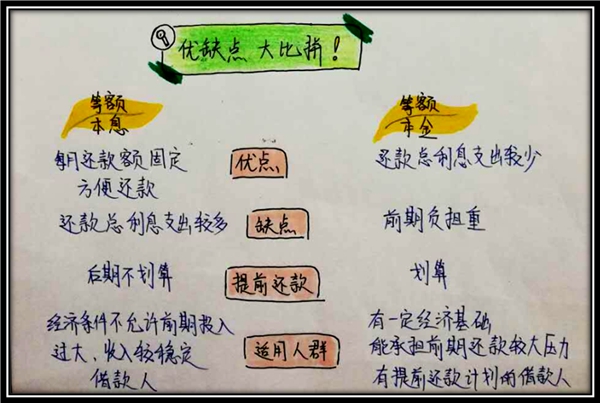 优缺点 大比拼！
等额
本息
等额
本金
每月还款额固定
方便还款
优点
还款总利息支出较少
还款总利息支出较多
缺点
前期负担重
后期不划算
提前还款
划算
经济条件不允许前期投入
过大、收入较稳定
借款人
适用人群
有一定经济基础
能承担前期还款较大压力
有提前还款计划的借款人